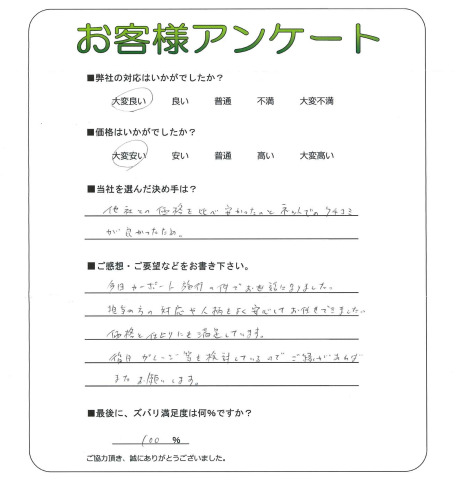 お客様アンケート
■弊社の対応はいかがでしたか？
大変良い 良い 普通 不満 大変不満
■価格はいかがでしたか？
大変安い 安い 普通 高い 大変高い
■当社を選んだ決め手は？
他社との価格を比べ安かったのとネットでの口コミ
が良かったため。
■ご感想・ご要望などをお書き下さい。
今日カーポート施行の件でお世話になりました。
担当の方の対応や人柄もよく安心してお任せできました。
価格と仕上りにも満足しています。
後日ガレージ等も検討しているのでご縁があれば
またお願いします。
■最後に、ズバリ満足度は何%ですか？
100 %
ご協力頂き、誠にありがとうございました。